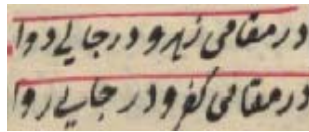 در مقامی زهر و در جایی دوا
در مقامی کفر و در جایی روا